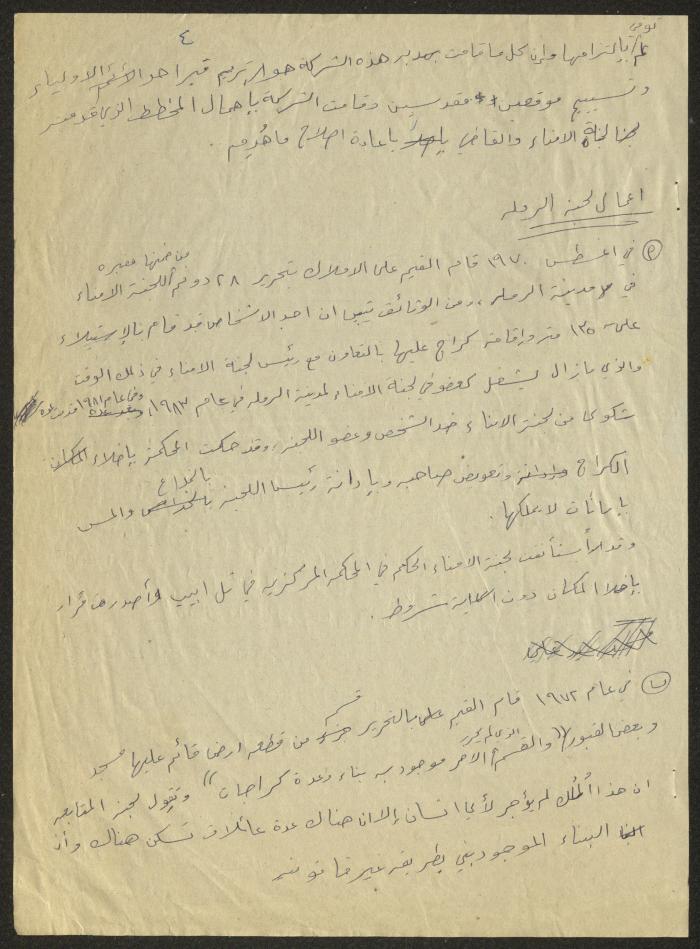 ٤
توفي
بالتزامها وان كل ما قامت به مدير هذه الشركة هو ترميم قبر احد الأئمة الاولياء
وتسييج موقعين مقدسين وقامت الشركة بإهمال المخطط الذي قدمته
لجنة الامناء والقاضي باعادة اصلاح ما هُدم .
اعمال لجنة الرمله
في اغسطس ١٩٧٠ قام القيم على الاملاك بتحرير ٢٨ دونم للجنة الامناء
من ضمنها مقبره
في مدينة الرمله ، ومن الوثائق تبين ان احد الاشخاص قد قام بالاستيلاء
على ١٣٥٠ متر واقامة كراج عليها بالتعاون مع رئيس لجنة الامناء في ذلك الوقت
والذي ما زال يشغل كعضو في لجنة الامناء لمدينة الرمله في عام ١٩٨٣، وفي عام ١٩٨١ قدمت
شكوى من لجنة الامناء ضد الشخص وعضو اللجنه ، وقد حكمت المحكمة بإخلاء
الكراج وتعويض صاحبه وبإدانة رئيس اللجنة بالخداع والمس
بإمانات لا يملكها .
وقد استأنفت لجنة الامناء الحكم في المحكمه المركزيه في تل ابيب وأصدرت قرار
بإخلاء المكان دون اية شروط .
في عام ١٩٧٢ قام القيم بالتحرير قسم من قطعه ارض قائم عليها مسجد
وبعض القبور (( والقسم الآخر الذي لم يحرر موجود به بناء وعدة كراجات )) وتقول لجنة المتابعه
ان هذا المُلك لم يؤجر لأي انسان إلا ان هناك عدة عائلات تسكن هناك وأن
البناء الموجود بني بطريقه غير قانونيه